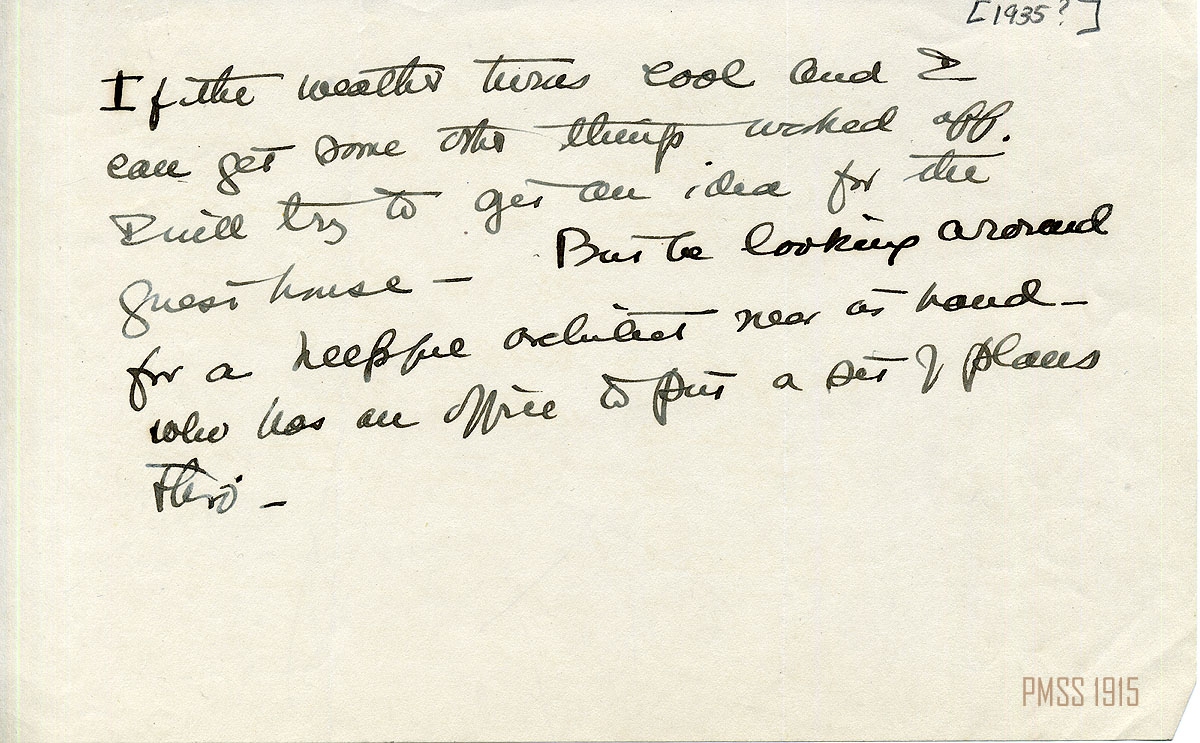 [1935?]
If the weather turns cool and I
can get some other things worked off.
I will try to get an idea for the
guest house – But be looking around
for a helpful architect near at hand –
who has an office to put a set of plans
thro' –
PMSS 1915